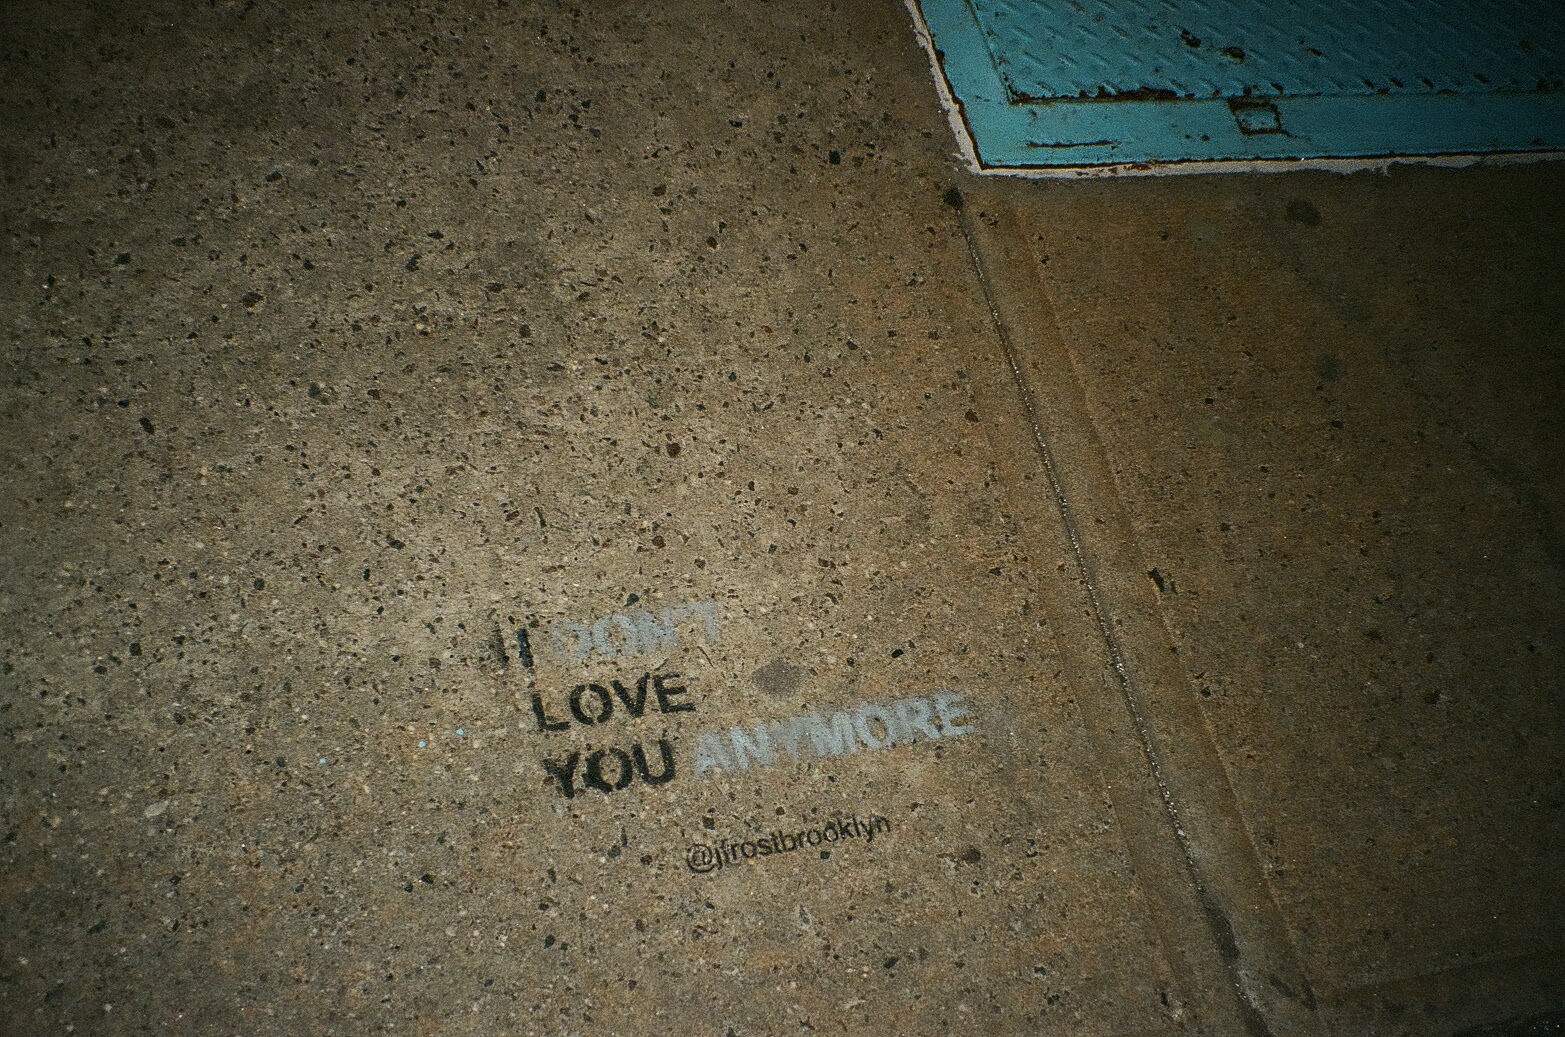 I DON'T
LOVE
YOU ANYMORE
@jfrostbrooklyn